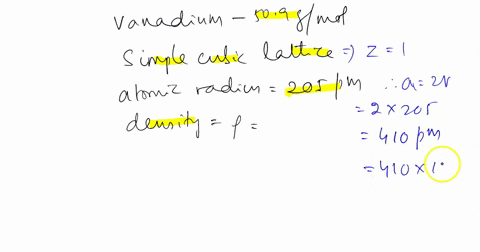 Vanadium - 50.9 g/mol
Simple cubic lattice ⇒ Z = 1
atomic radius = 205 pm ∴ a = 2r
= 2 × 205
density = ρ =
= 410 pm
= 410 × 1